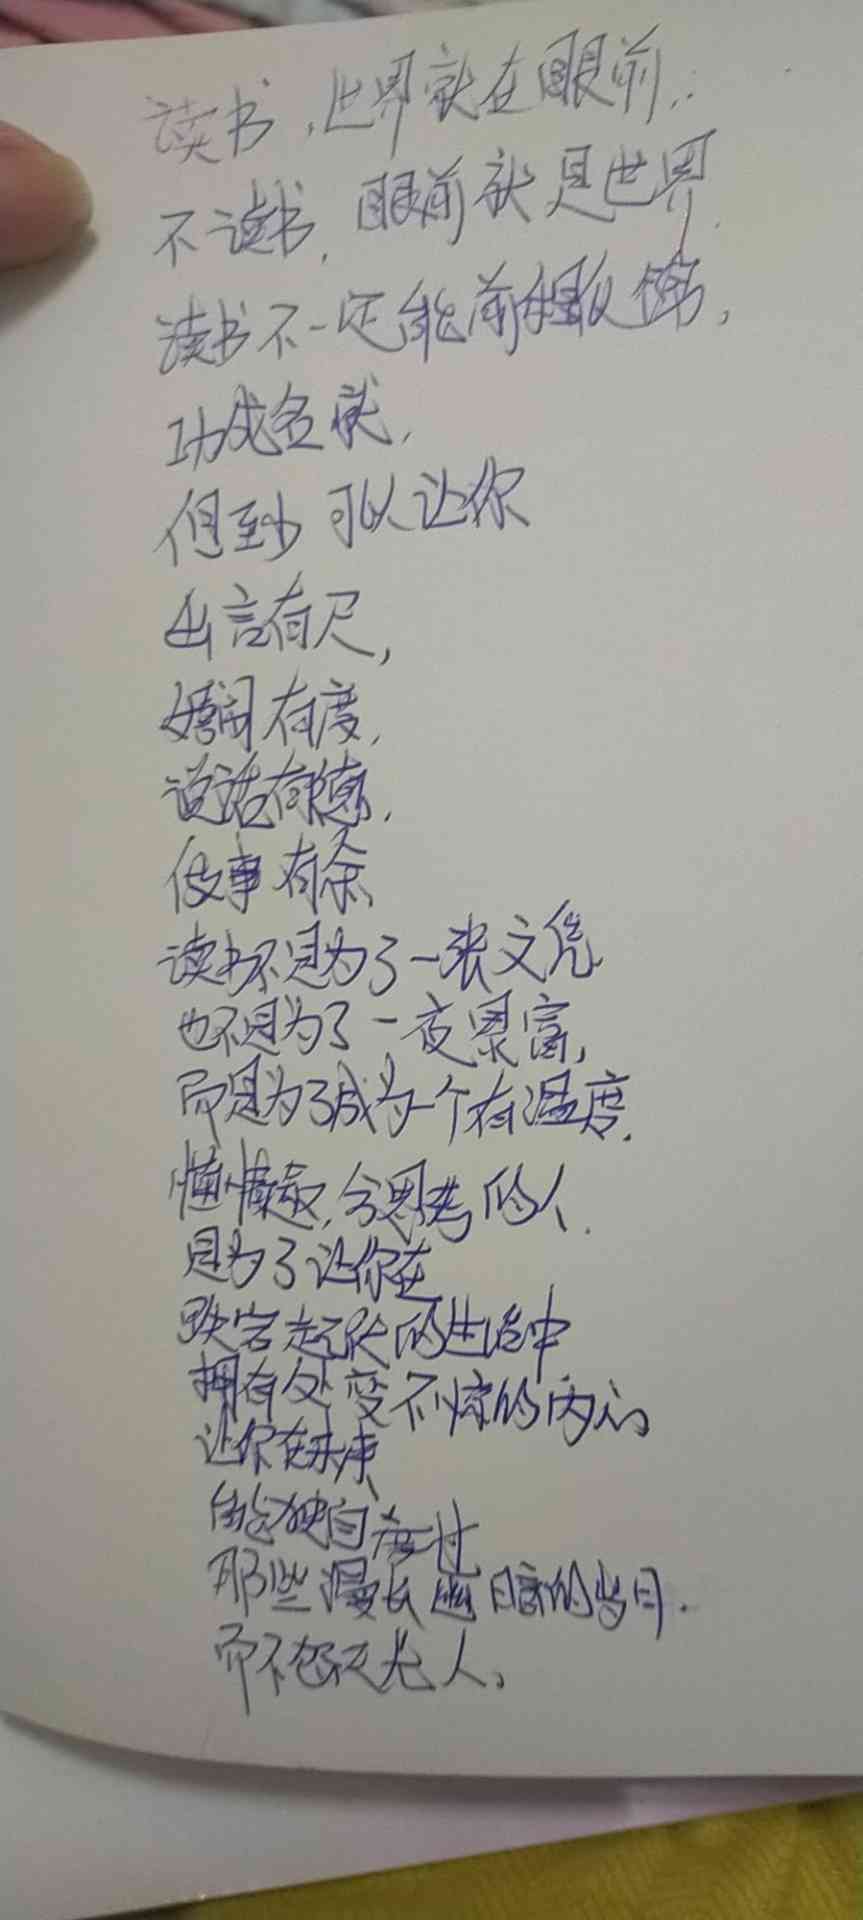 读书，世界就在眼前，
不读书，眼前就是世界．
读书不一定能前程似锦，
功成名就，
但至少可以让你
出言有尺，
嬉闹有度，
说话有德，
做事有余
读书不是为了一张文凭
也不是为了一夜暴富，
而是为了成为一个有温度．
懂情趣，会思考的人．
是为了让你在
跌宕起伏的生活中
拥有处变不惊的内心
让你在未来
能独自度过
那些漫长幽暗的岁月．
而不怨天尤人。